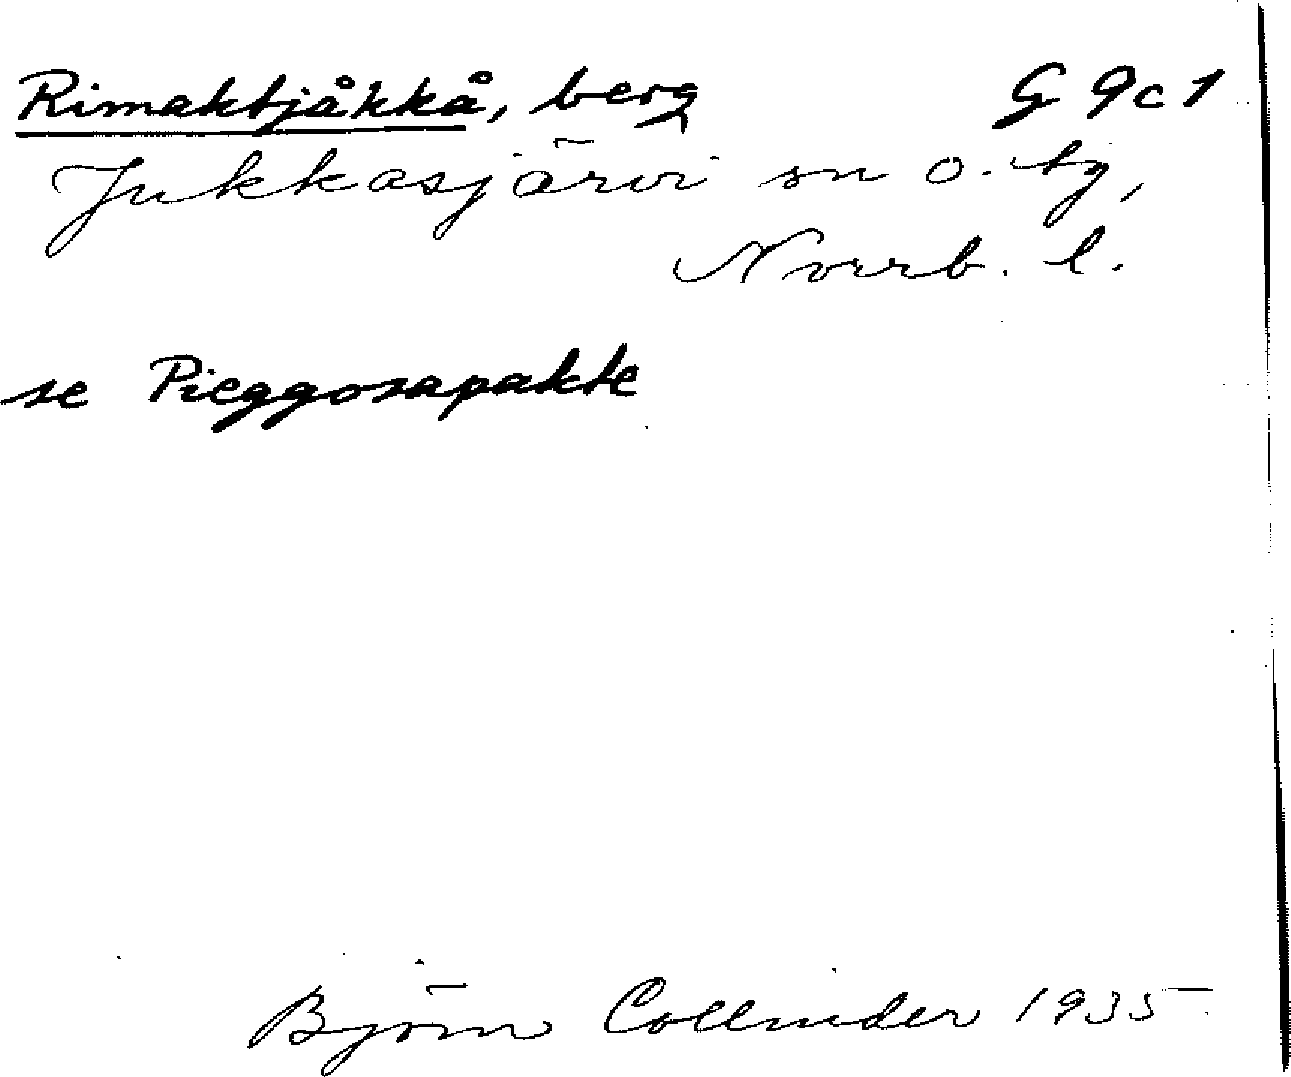 Rimaktjåkkå, berg G 9c1
Jukkasjärvi sn o. tg,
Norrb. l.
se Pieggosapakte
Björn Collinder 1935